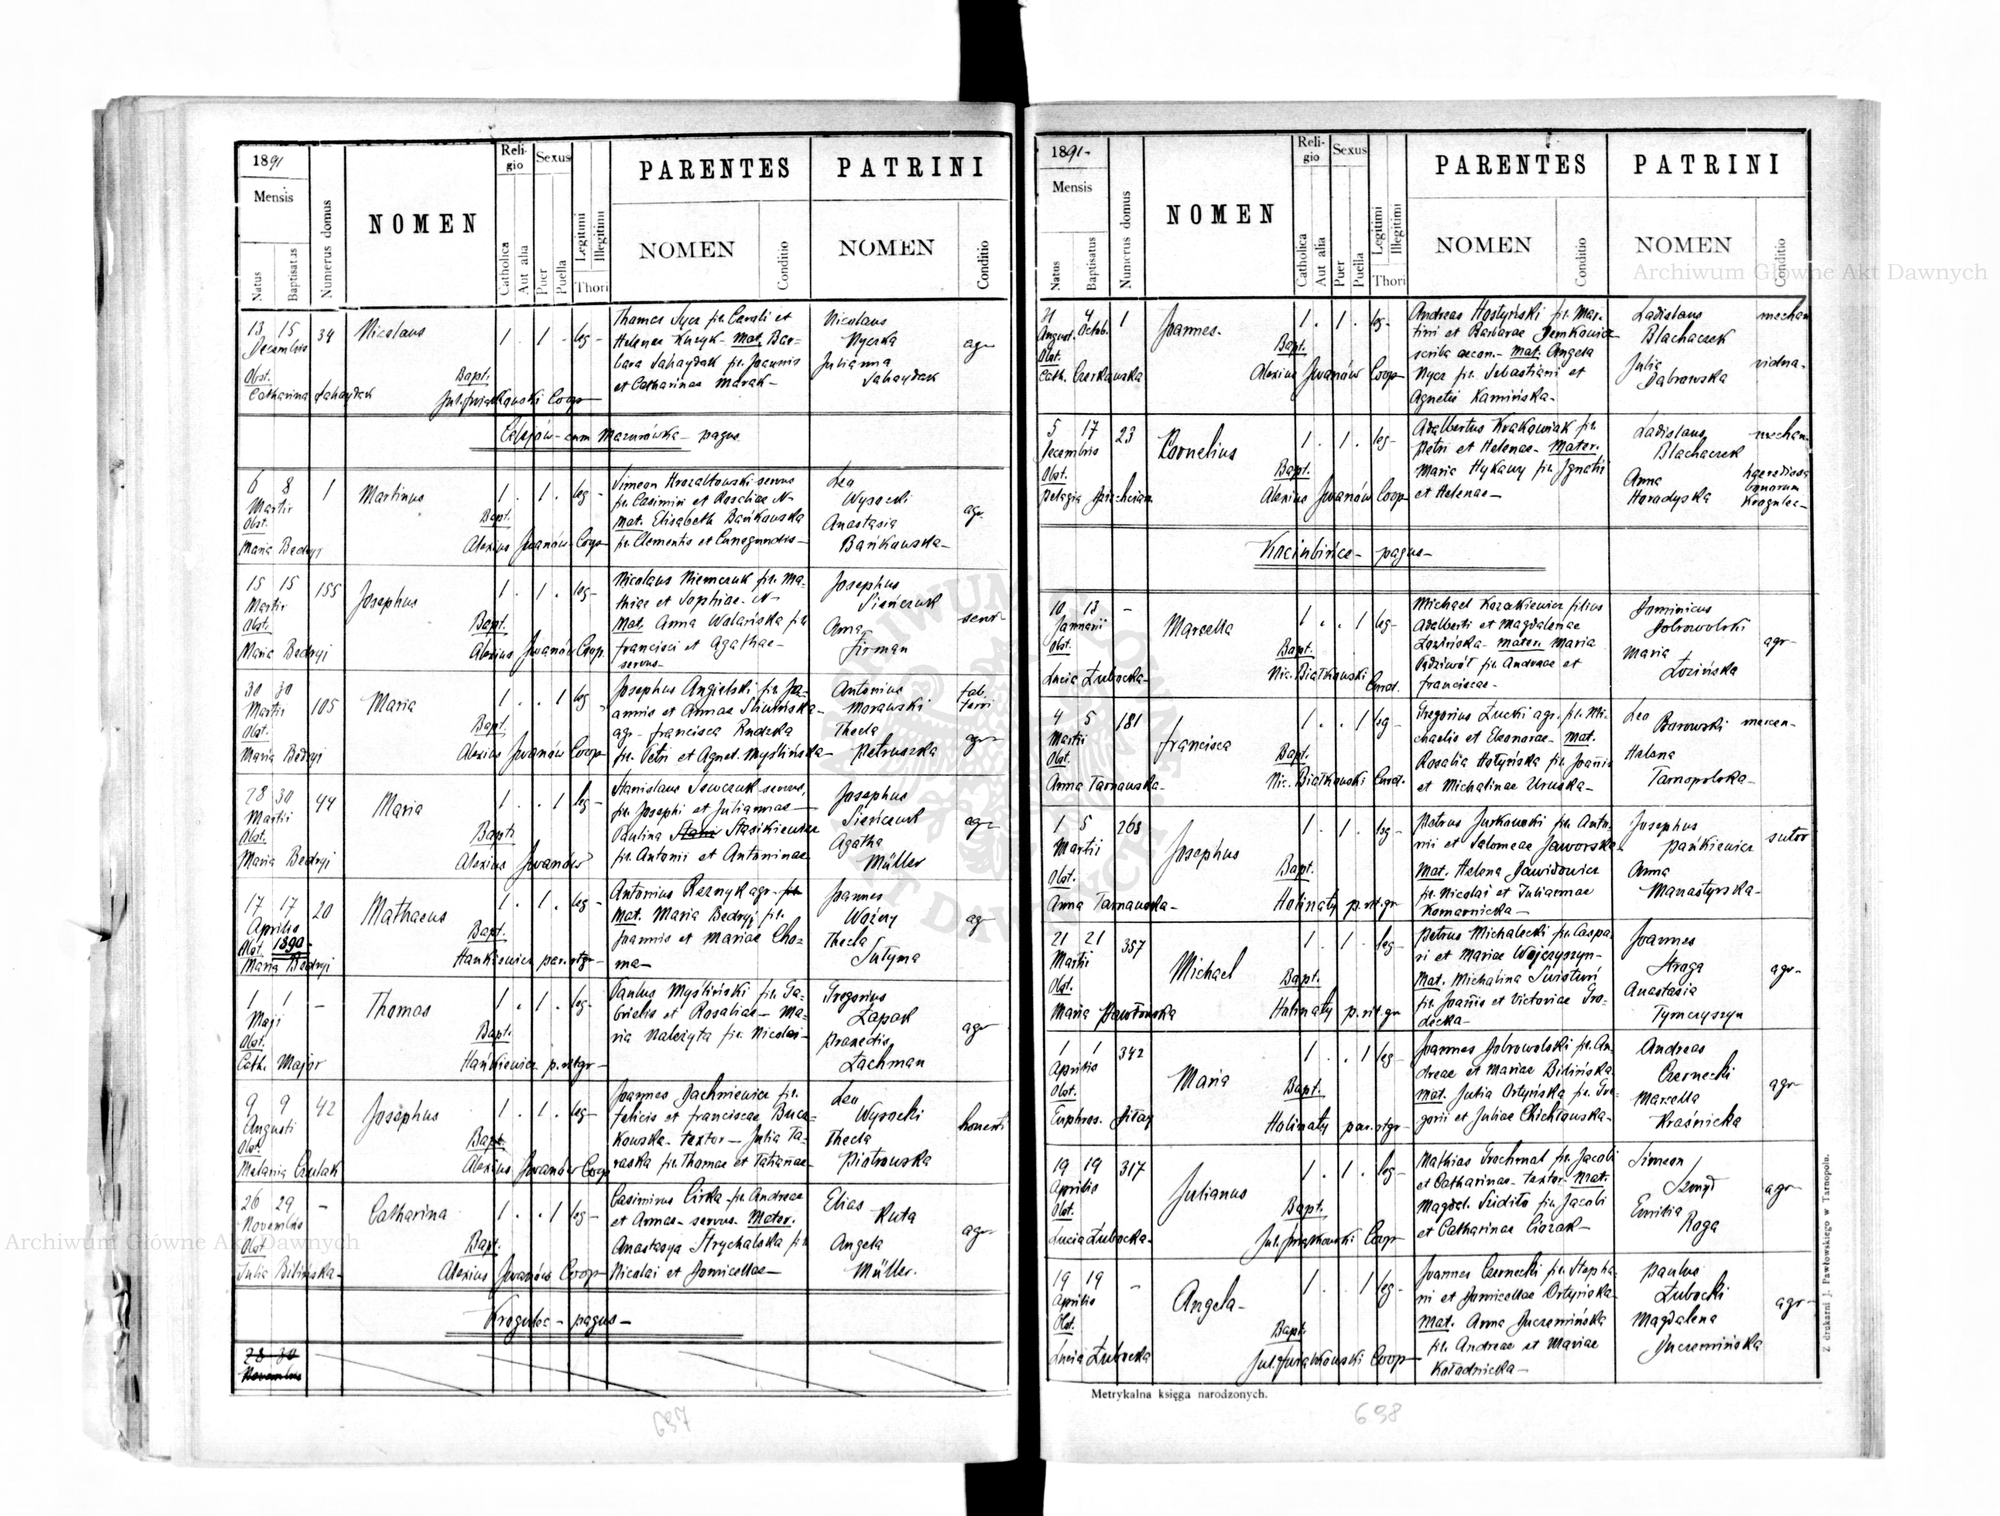 1891
Mensis
Natus
Baptisatus
Numerus domus
NOMEN
Religio
Catholica
Aut alia
Sexus
Puer
Puella
Legitimi
Illegitimi
Thori
PARENTES
NOMEN
Conditio
PATRINI
NOMEN
Conditio
13 15 34 Nicolaus 1 . 1 . leg-
Decembris
Obst.
Catharina Sahaydak
Bapt.
Kawski Coop
Thomas Sycz fil. Caroli et
Helenae Kuzyk - Mat. Bar-
bara Sahaydak fil. Joannis
et Catharinae Marak-
Nicolaus
Nyczka
Julianna
Sahaydak
agr
Celejów - cum Mazurówka - pagus
6 8 1 Martinus 1 . 1 . leg-
Martii
Obst.
Maria Bedryj
Bapt.
Alexius Iwanów Coop
Simeon servus
fil. Casimiri et Rosaliae N-
Mat. Elisabeth Bańkowska
fil. Clementis et Cunegundis-
Leo
Wysocki
Anastasia
Bańkowska-
agr
15 15 155 Josephus 1 . 1 . leg-
Martii
Obst.
Maria Bedryj
Bapt.
Alexius Iwanów Coop.
Nicolaus Niemczuk fil. Ma-
thiae et Sophiae - N-
Mat. Anna Walańska fil.
Francisci et Agathae-
servus-
Josephus
Sieńczuk
Anna
Firman
servi
30 30 105 Maria 1 . . 1 leg-
Martii
Obst.
Maria Bedryj
Bapt.
Alexius Iwanów Coop
Josephus Angielski fil. Jo-
annis et Annae Śliwińska-
agr- Francisca Rudzka
fil. Petri et Agnet. Myslińska-
Antonius
Morawski
Thecla
Petruszka
fab.
ferri
agr
28 30 44 Maria 1 . . 1 leg-
Martii
Obst.
Maria Bedryj
Bapt.
Alexius Iwanów
Stanislaus servus,
fil. Josephi et Juliannae-
Paulina Stasikiewicz
fil. Antonii et Antoninae
Josephus
Sieńczuk
Agatha
Müller
agr
17 17 20 Mathaeus 1 . 1 . leg-
Aprilis
Obst. 1890-
Maria Bedryj
Bapt.
Hankiewicz par. rt gr-
Antonius Reznyk agr-
Mat. Maria Bedryj fil.
Joannis et Mariae Cho-
ma-
Joannes
Woźny
Thecla
Sutyma
agr
1 1 - Thomas 1 . 1 . leg-
Maji
Obst.
Cath. Major
Bapt.
Hankiewicz p. rt gr-
Paulus Mysliński fil. Ga-
brielis et Rosaliae- Ma-
ria Należyta fil. Nicolai-
Gregorius
Łapak
Praxedis
Lachman
agr
9 9 42 Josephus 1 . 1 . leg-
Augusti
Obst.
Melania Czulak
Bapt.
Alexius Iwanów Coop
Joannes Jachniewicz fil.
Felicis et Franciscae Bucz-
Kowska- textor- Julia Ta-
raska fil. Thomae et Tatianae-
Leo
Wysocki
Thecla
Piotrowska
honesti
26 29 - Catharina 1 . . 1 leg-
Novembris
Obst
Julia Bilińska-
Bapt.
Alexius Iwanów Coop
Casimirus Cirka- fil. Andreae
et Annae- servus. Mater.
Anastasya Strychalska fil.
Nicolai et Domicellae-
Elias
Ruta
Angela
Müller.
agr
Krogulec - pagus -
28 30
Novembris
637
1891-
Mensis
Natus
Baptisatus
Numerus domus
NOMEN
Religio
Catholica
Aut alia
Sexus
Puer
Puella
Legitimi
Illegitimi
Thori
PARENTES
NOMEN
Conditio
PATRINI
NOMEN
Conditio
21 4 1 Joannes- 1 . 1 . leg-
August. Octob.
Obst.
Cath. Czerkawska
Bapt.
Alexius Iwanów Coop
Andreas Hostyński fil. Mar-
tini et Barbarae Demkowicz
scriba oecon.- mat. Angela
Nycz fil. Sebastiani et
Agnetis Kamińska-
Ladislaus
Blachaczek
Julia
Dąbrowska
mechan
vidua-
5 17 23 Cornelius 1 . 1 . leg-
Decembris
Obst.
Pelagia
Bapt.
Alexius Iwanów Coop
Adalbertus Krakowiak fil.
Petri et Helenae- Mater.
Maria Hykawy fil. Ignatii
et Helenae-
Ladislaus
Blachaczek
Anna
Horodyska
mechan.
haereditaria
bonorum
Krogulec-
Kociubińce - pagus-
10 13 - Marcella 1 . . 1 leg-
Januarii
Obst.
Lucia Łubocka-
Bapt.
Nic. Białkowski Curat.
Michael Kozakiewicz filius
Adalberti et Magdalenae
Łozińska- mater. Maria
Radziwół fil. Andreae et
Franciscae-
Dominicus
Dobrowolski
Maria
Łozińska
agr-
4 5 181 Francisca 1 . . 1 leg-
Martii
Obst.
Anna Tarnawska-
Bapt.
Nic. Białkowski Curat.
Gregorius Łucki agr. fil. Mi-
chaelis et Eleonorae- Mat.
Rosalia Hołyńska fil. Joannis
et Michalinae Uruska-
Leo
Borowski
Helena
Tarnopolska-
1 5 268 Josephus 1 . 1 . leg-
Martii
Obst.
Anna Tarnawska-
Bapt.
Holinaty p. rit. gr
Petrus Jurkowski fil. Anto-
nii et Salomeae Jaworska-
Mat. Helena Dawidowicz
fil. Nicolai et Juliannae
Komarnicka-
Josephus
Pańkiewicz
Anna
Manastyrska-
sutor
21 21 357 Michael 1 . 1 . leg-
Martii
Obst.
Maria Pawłowska
Bapt.
Holinaty p. rit. gr
Petrus Michalecki fil. Caspa-
ri et Mariae Wojczyszyn-
Mat. Michalina Świstuń
fil. Joannis et Victoriae Gro-
decka-
Joannes
Straga
Anastasia
Tymczyszyn
agr-
1 1 342 Maria 1 . . 1 leg-
Aprilis
Obst.
Euphros.
Bapt.
Holinaty par. rt gr-
Joannes Dobrowolski fil. An-
dreae et Mariae Bilińska
mat. Julia Ortyńska fil. Gre-
gorii et Juliae Chichłowska-
Andreas
Czernecki
Marcella
Kraśnicka
agr-
19 19 317 Julianus 1 . 1 . leg-
Aprilis
Obst.
Lucia Łubocka-
Bapt.
Coop
Mathias Grochmal fil. Jacobi
et Catharinae- textor- Mat.
Magdal. Szidlo fil. Jacobi
et Catharinae Ciozak-
Simeon
Szmyd
Emilia
Raga
agr-
19 19 - Angela- 1 . . 1 leg-
Aprilis
Obst.
Lucia Łubocka
Bapt.
Coop
Joannes Czernecki fil. Stepha-
ni et Domicellae Ortyńska-
Mat. Anna Juczemińska
fil. Andreae et Mariae
Kołodnicka-
Paulus
Łubocki
Magdalena
Juczemińska
agr-
Metrykalna księga narodzonych.
Z drukarni J. Pawłowskiego w Tarnopolu.
698
Archiwum Główne Akt Dawnych
Archiwum Główne Akt Dawnych